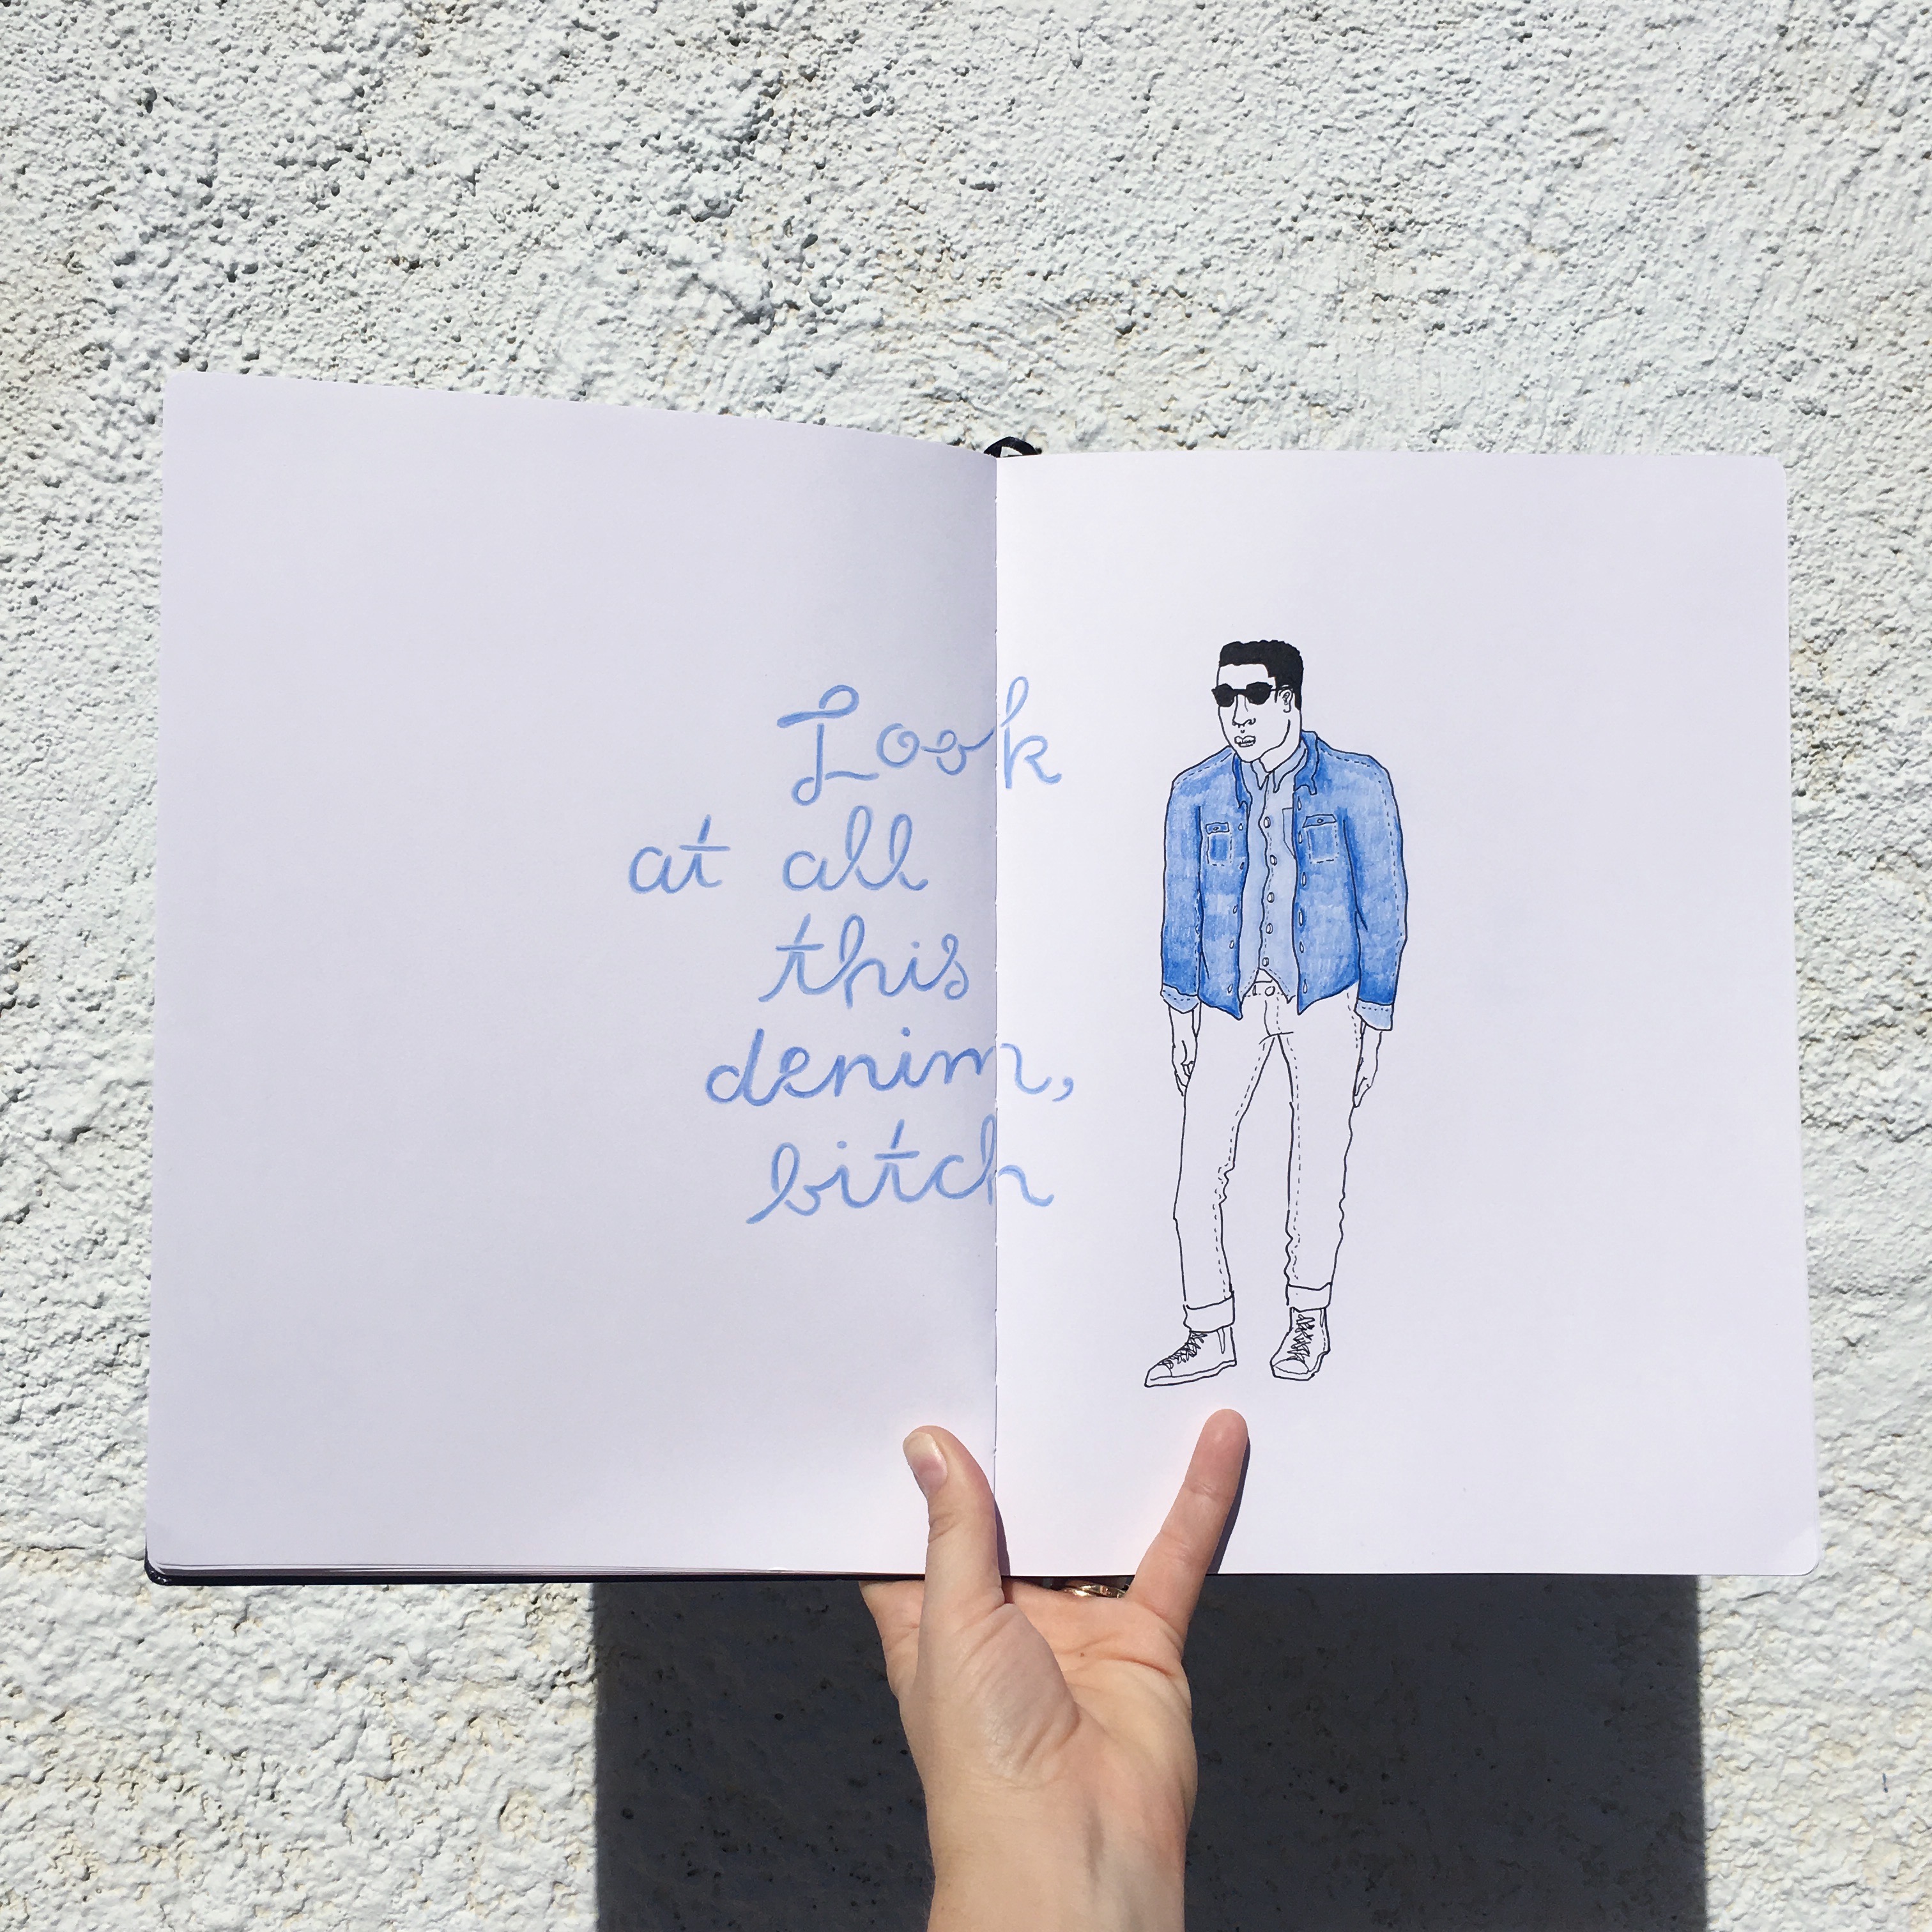 Look
at all
this
denim,
bitch